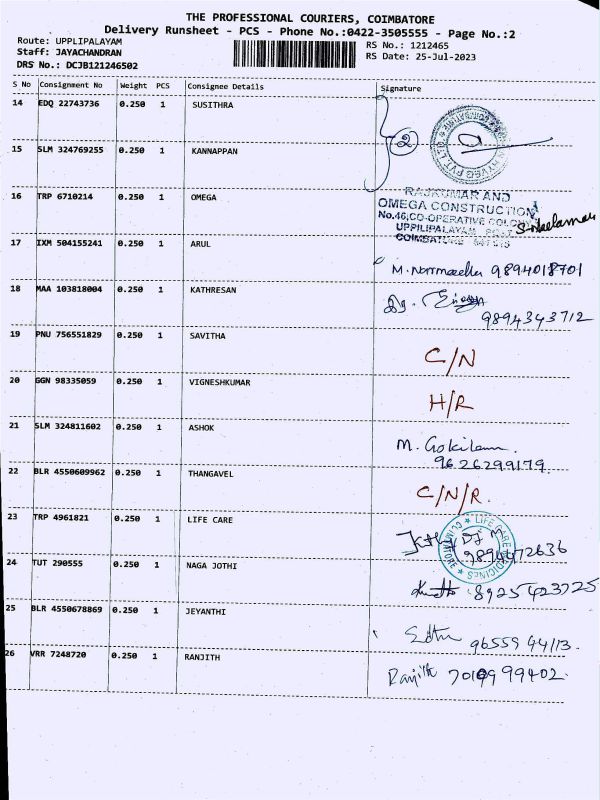 THE PROFESSIONAL COURIERS, COIMBATORE
Delivery Runsheet - PCS - Phone No.:0422-3505555 - Page No.:2
Route: UPPLIPALAYAM
Staff: JAYACHANDRAN
DRS No.: DCJB121246502
RS No.: 1212465
RS Date: 25-Jul-2023
S No Consignment No Weight PCS Consignee Details Signature
14 EDQ 22743736 0.250 1 SUSITHRA
2
15 SLM 324769255 0.250 1 KANNAPPAN
16 TRP 6710214 0.250 1 OMEGA
RAJKUMAR AND
OMEGA CONSTRUCTION
No.46,CO-OPERATIVE COLONY
UPPILIPALAYAM POST
COIMBATORE - 641 015
17 IXM 504155241 0.250 1 ARUL
9894018701
18 MAA 103818004 0.250 1 KATHRESAN
9894343712
19 PNU 756551829 0.250 1 SAVITHA
C/N
20 GGN 98335059 0.250 1 VIGNESHKUMAR
H/R
21 SLM 324811602 0.250 1 ASHOK
M. Gokilam.
9626299179
22 BLR 4550609962 0.250 1 THANGAVEL
C/N/R.
23 TRP 4961821 0.250 1 LIFE CARE
LIFE CARE MEDICINES
COIMBATORE
9894472636
24 TUT 290555 0.250 1 NAGA JOTHI
8925423725
25 BLR 4550678869 0.250 1 JEYANTHI
26 VRR 7248720 0.250 1 RANJITH
Ranjith